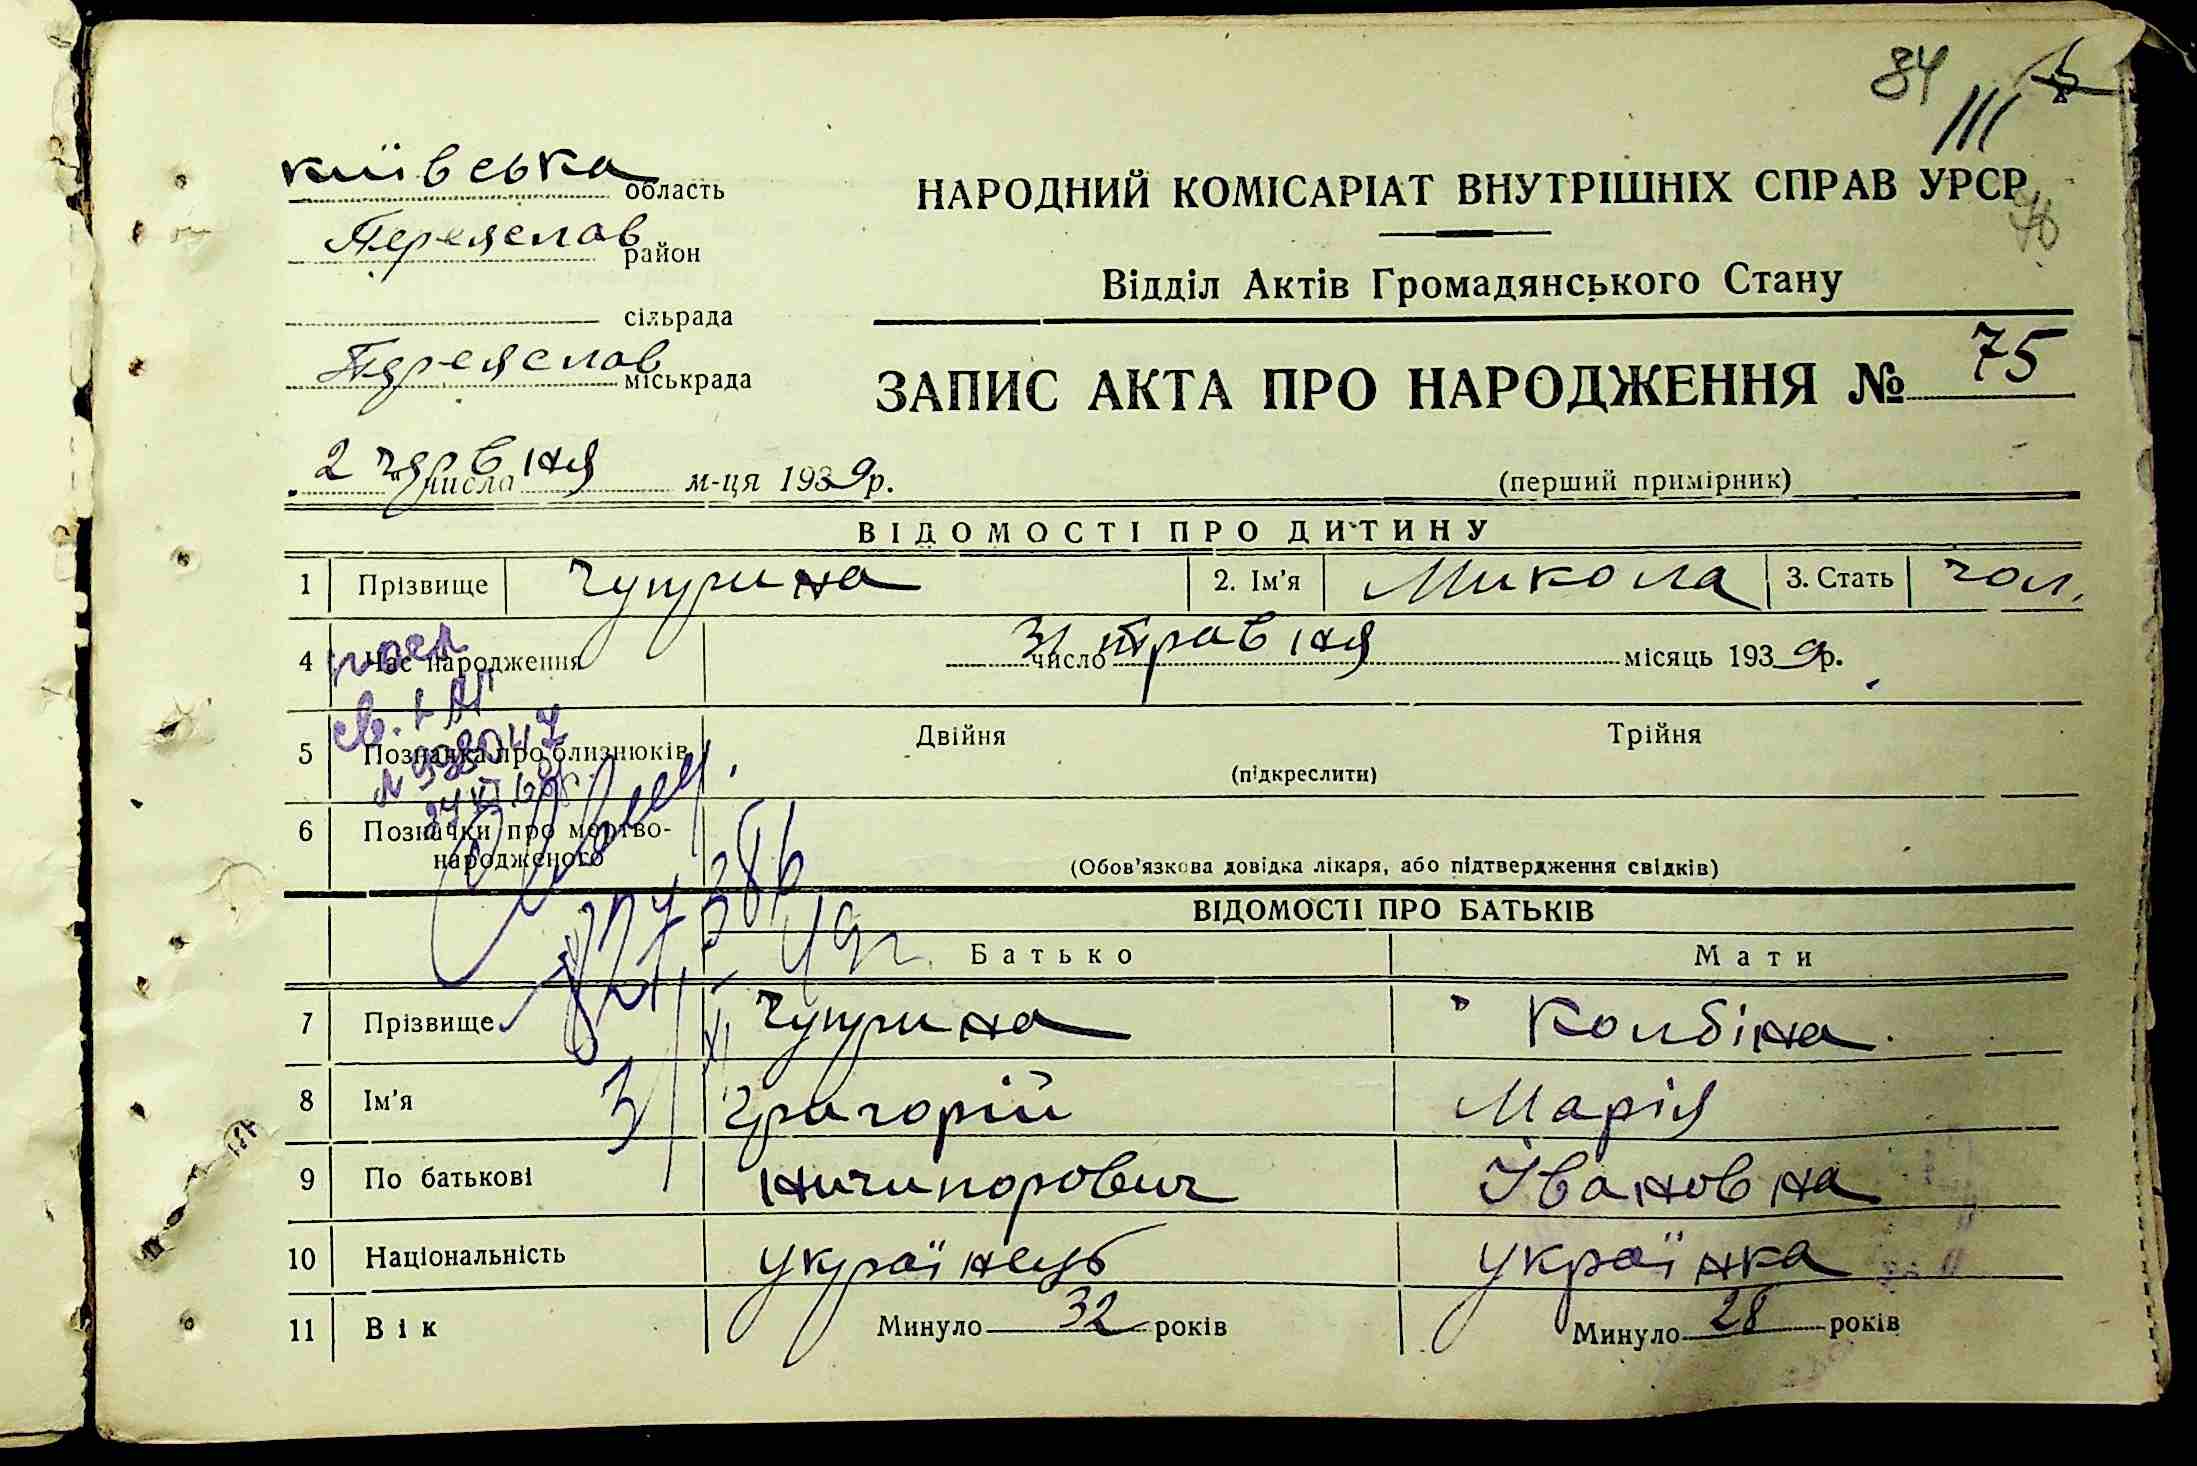 84
III
київська область
Переяслав район
сільрада
Переяслав міськрада
НАРОДНИЙ КОМІСАРІАТ ВНУТРІШНІХ СПРАВ УРСР
Відділ Актів Громадянського Стану
ЗАПИС АКТА ПРО НАРОДЖЕННЯ № 75
2 числа червіня м-ця 1939р.
(перший примірник)
ВІДОМОСТІ ПРО ДИТИНУ
1 Прізвище Чуприна 2. Ім'я Микола 3. Стать чол.
4 Час народження 31 число травіня місяць 1939р.
5 Познавка про близнюків Двійня Трійня
(підкреслити)
6 Позначки про мертво-
народженого
(Обов'язкова довідка лікаря, або підтвердження свідків)
ВІДОМОСТІ ПРО БАТЬКІВ
Батько Мати
7 Прізвище Чуприна Колбіна
8 Ім'я Григорій Марія
9 По батькові Ничипорович Івановна
10 Національність українець українка
11 Вік Минуло 32 років Минуло 28 років